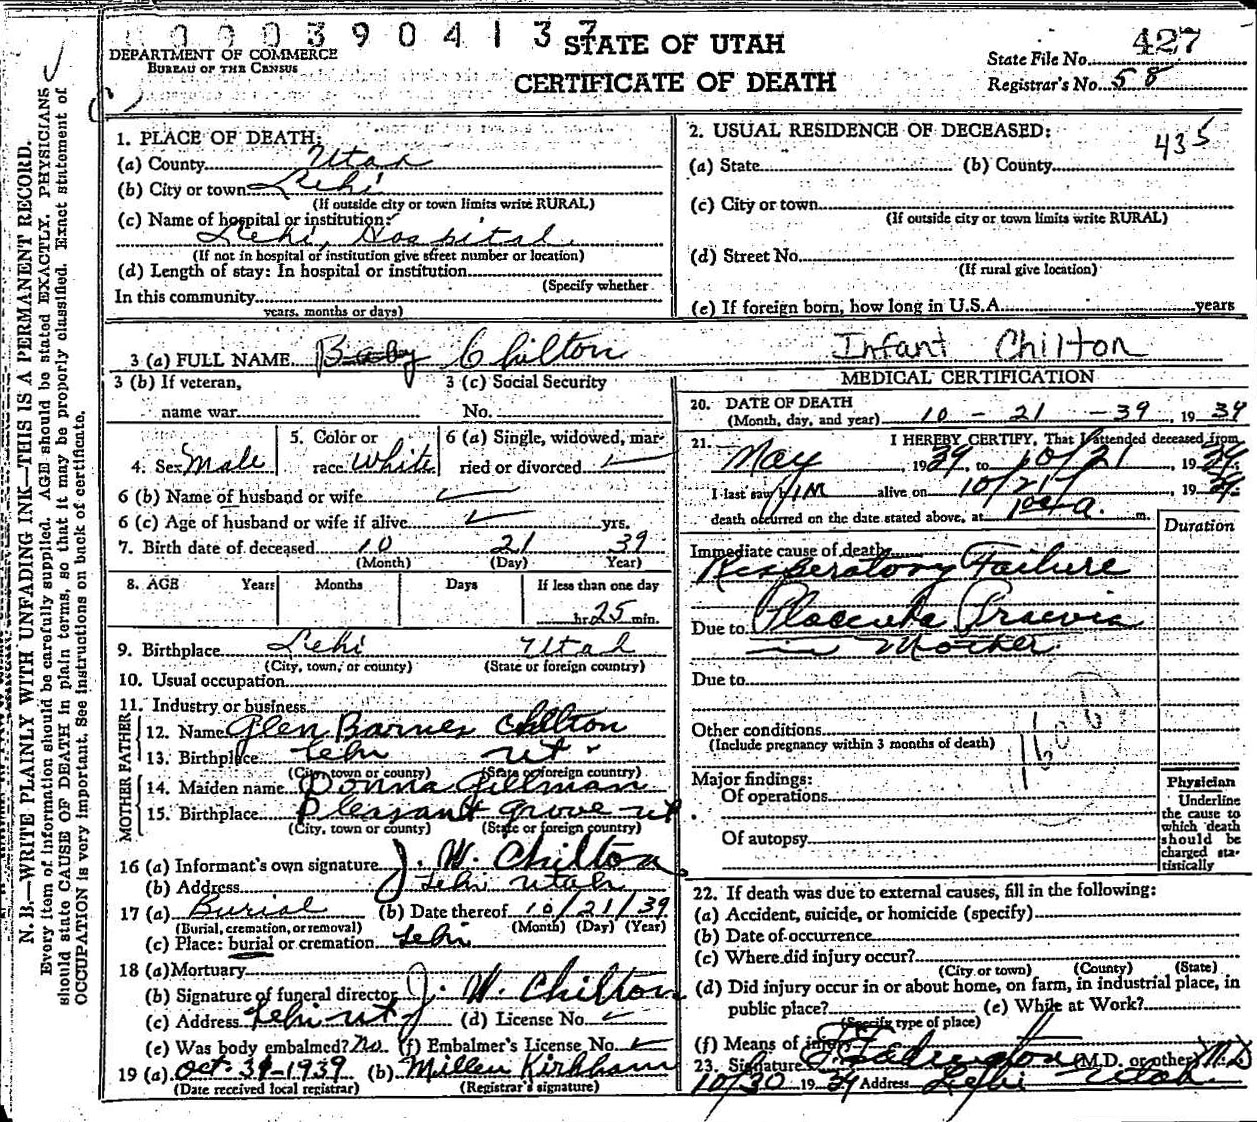 0003904137
DEPARTMENT OF COMMERCE
BUREAU OF THE CENSUS
STATE OF UTAH
CERTIFICATE OF DEATH
State File No. 427
Registrar's No. 58
N. B.—WRITE PLAINLY WITH UNFADING INK—THIS IS A PERMANENT RECORD.
Every item of information should be carefully supplied. AGE should be stated EXACTLY. PHYSICIANS
should state CAUSE OF DEATH in plain terms, so that it may be properly classified. Exact statement of
OCCUPATION is very important. See instructions on back of certificate.
1. PLACE OF DEATH:
(a) County Utah
(b) City or town Lehi
(If outside city or town limits write RURAL)
(c) Name of hospital or institution:
Lehi, Hospital
(If not in hospital or institution give street number or location)
(d) Length of stay: In hospital or institution
(Specify whether
In this community
years, months or days)
2. USUAL RESIDENCE OF DECEASED:
435
(a) State (b) County
(c) City or town
(If outside city or town limits write RURAL)
(d) Street No.
(If rural give location)
(e) If foreign born, how long in U.S.A. years
3 (a) FULL NAME Baby Chilton Infant Chilton
3 (b) If veteran,
name war
3 (c) Social Security
No.
4. Sex Male
5. Color or
race White
6 (a) Single, widowed, mar-
ried or divorced
6 (b) Name of husband or wife
6 (c) Age of husband or wife if alive yrs.
7. Birth date of deceased 10 21 39
(Month) (Day) Year)
8. AGE Years Months Days If less than one day
hr 25 min.
9. Birthplace Lehi Utah
(City, town, or county) (State or foreign country)
10. Usual occupation
11. Industry or business
FATHER
12. Name Glen Barnes Chilton
13. Birthplace Lehi Ut
(City, town or county) (State or foreign country)
MOTHER
14. Maiden name Donna Gillman
15. Birthplace Pleasant Grove Ut
(City, town or county) (State or foreign country)
16 (a) Informant's own signature J. W. Chilton
(b) Address Lehi Utah
17 (a) Burial (b) Date thereof 10/21/39
(Burial, cremation, or removal) (Month) (Day) (Year)
(c) Place: burial or cremation Lehi
18 (a) Mortuary
(b) Signature of funeral director J. W. Chilton
(c) Address Lehi Ut (d) License No.
(e) Was body embalmed? No. (f) Embalmer's License No.
19 (a) Oct. 31-1939 (b) Millen Kirkham
(Date received local registrar) (Registrar's signature)
MEDICAL CERTIFICATION
20. DATE OF DEATH
(Month, day, and year) 10 - 21 - 39, 19 39
21. I HEREBY CERTIFY, That I attended deceased from
May, 1939, to 10/21, 1939.
I last saw h im alive on 10/21, 1939.
death occurred on the date stated above, at a. m.
Duration
Immediate cause of death
Respiratory Failure
Due to Placenta Praevia
in Mother
Due to
Other conditions
(Include pregnancy within 3 months of death)
160b
Major findings:
Of operations
Of autopsy
Physician
Underline
the cause to
which death
should be
charged sta-
tistically
22. If death was due to external causes, fill in the following:
(a) Accident, suicide, or homicide (specify)
(b) Date of occurrence
(c) Where did injury occur?
(City or town) (County) (State)
(d) Did injury occur in or about home, on farm, in industrial place, in
public place? (e) While at Work?
(Specify type of place)
(f) Means of injury
23. Signature Eddington (M.D. or other) M.D.
10/30 19 39 Address Lehi Utah.